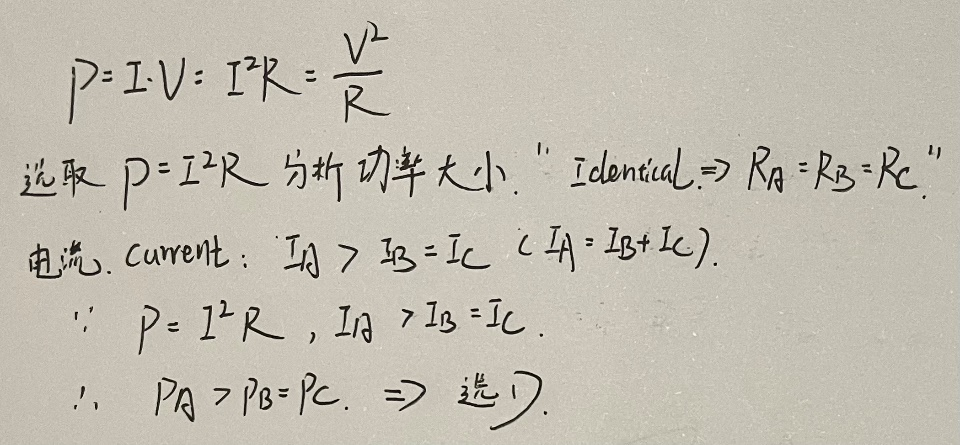 P=I·V= I²R = V²/R
选取 P=I²R 分析功率大小. "Identical.⇒ R_A=R_B=R_C."
电流. Current: I_A > I_B = I_C (I_A = I_B+I_C).
∵ P=I²R, I_A > I_B = I_C.
∴ P_A > P_B = P_C. ⇒ 选D.